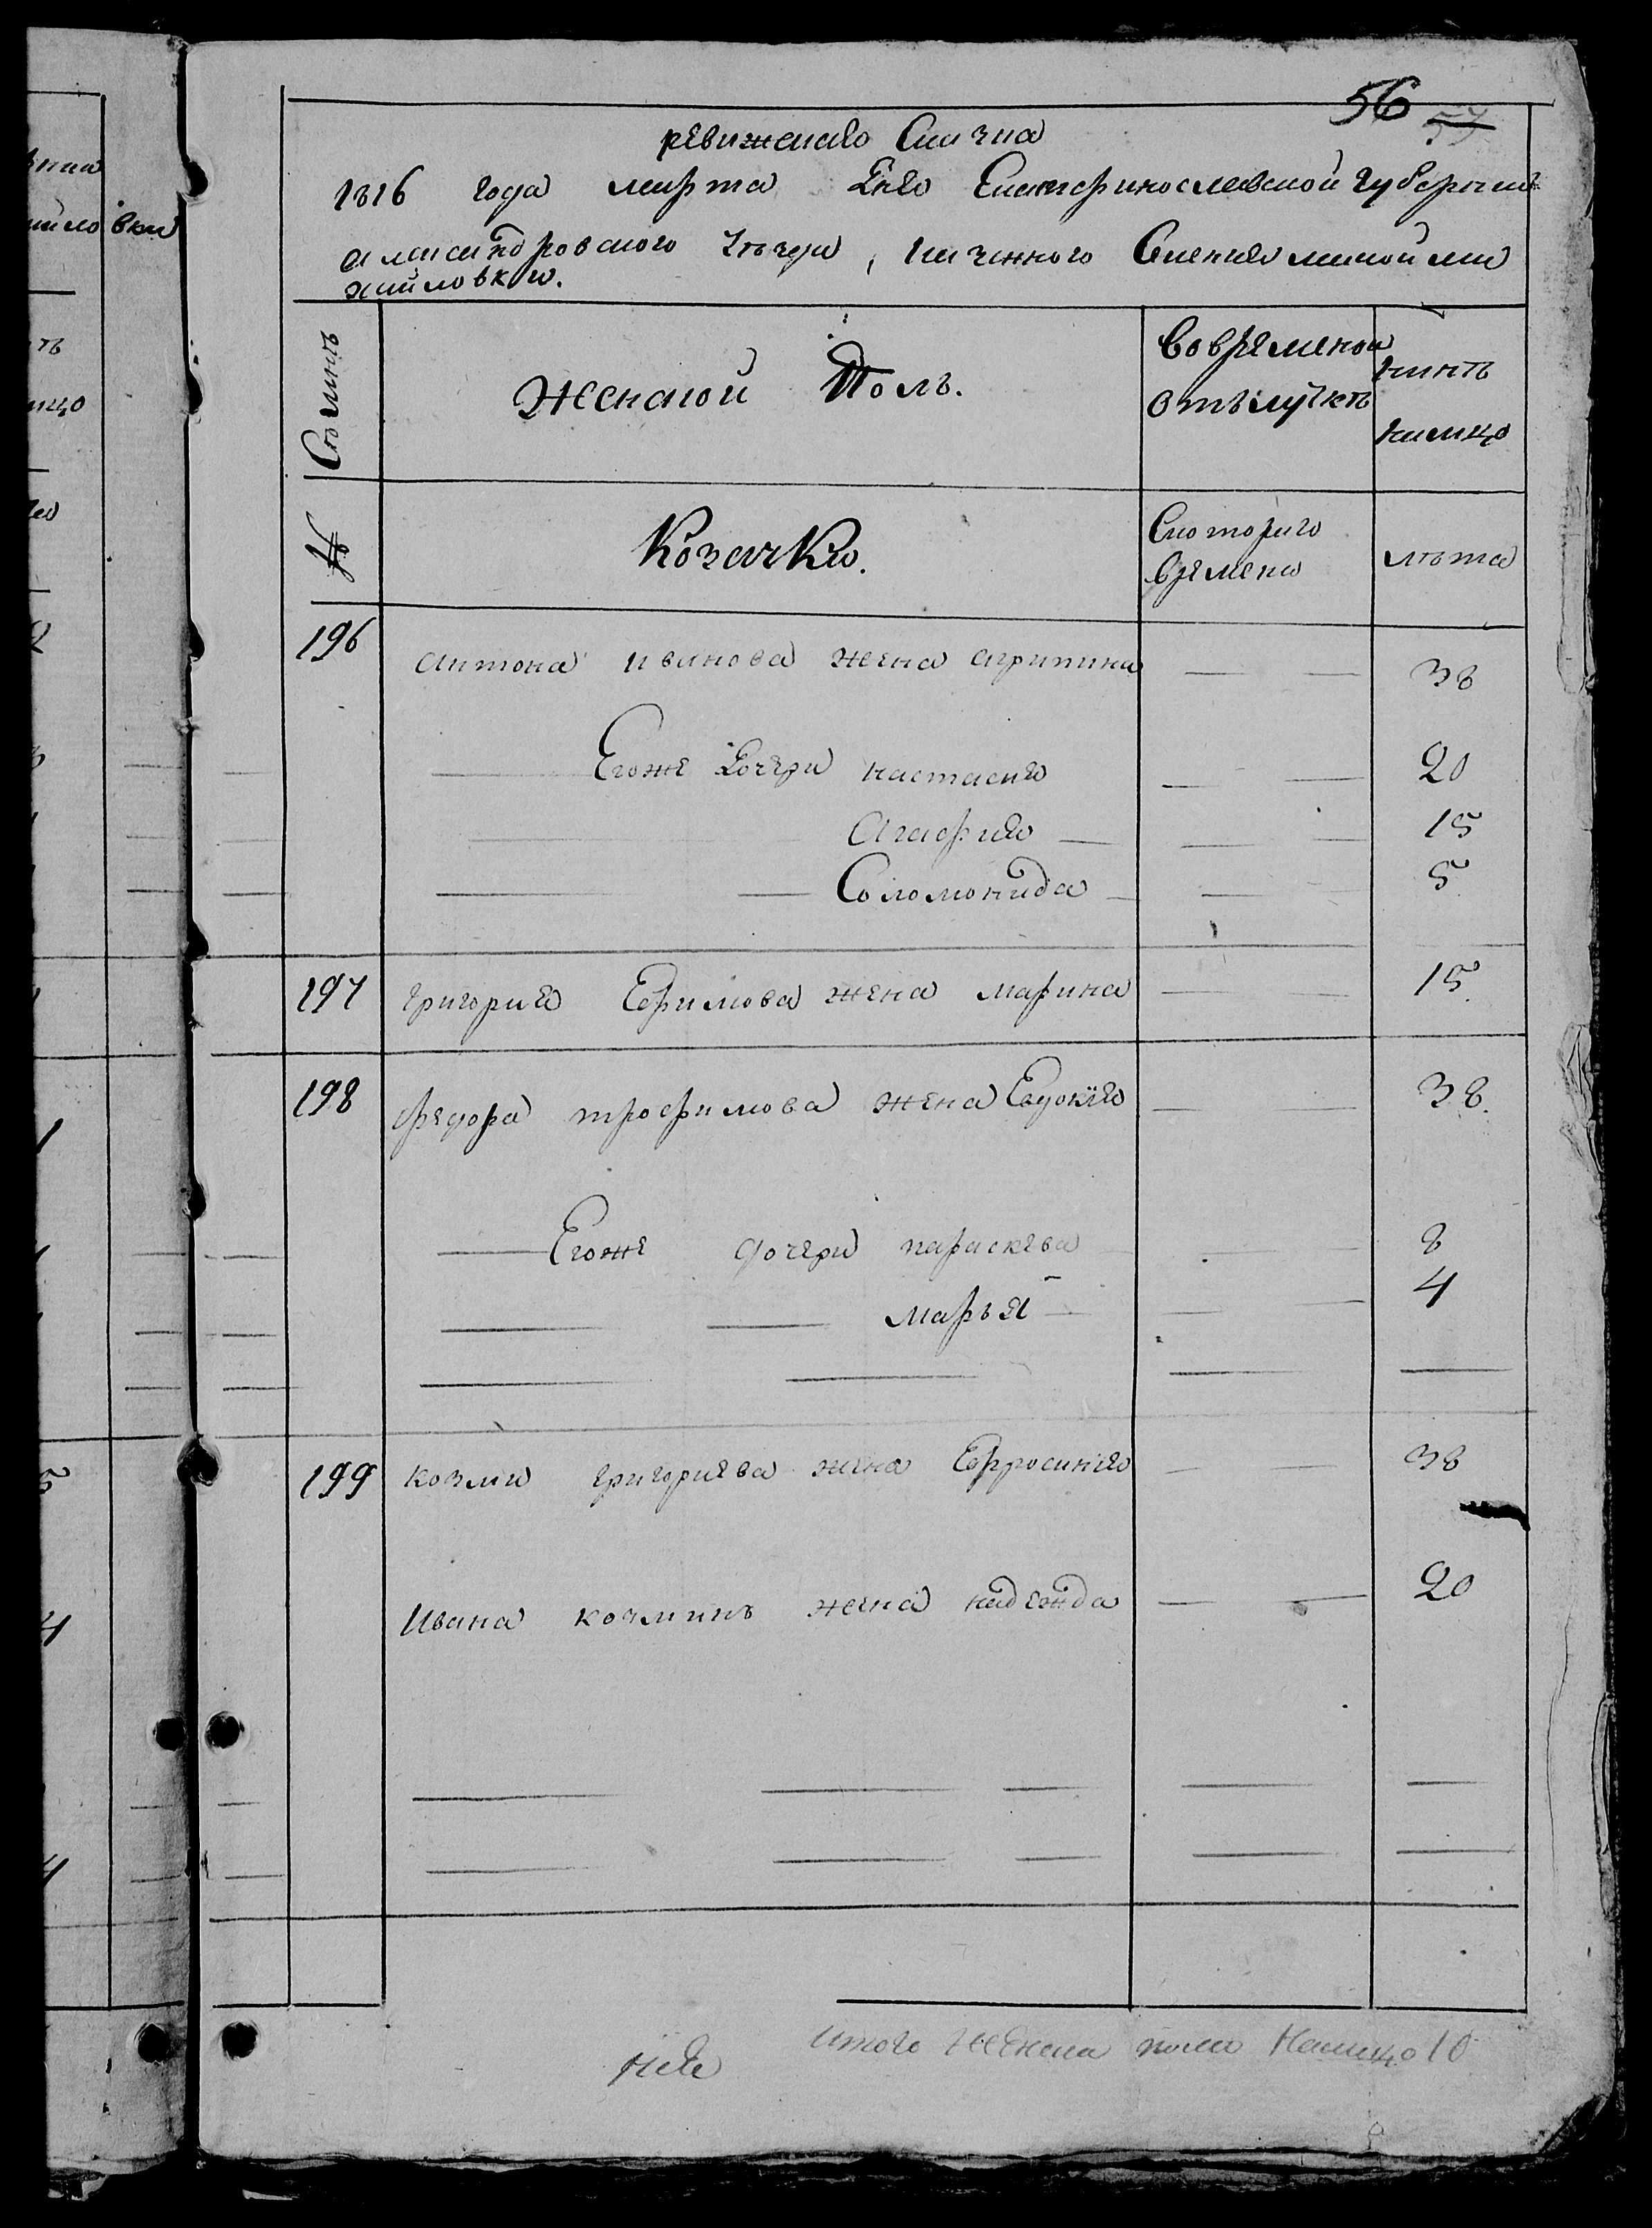 56 57
ревижская Скаска
1816 года марта дня Екатеринославской губернии
александровского уезда, казенного Селения малой ми
хайловки.
Семьи
Женской Полъ.
Вовременой
отълучкѣ
нынѣ
налицо
№
Козачки.
Скоторого
времени
лѣта
196
антона иванова жена агрипина
38
Егоже дочери настасия
20
Агафия
15
Соломонида
5
197
григория Ефимова жена марина
15
198
федора трофимова жена Евдокїя
38
Егоже дочери параскева
8
марья
4
199
козми григориева жена Ефросиния
38
Ивана козминъ жена надежда
20
итого женска пола Налицо 10